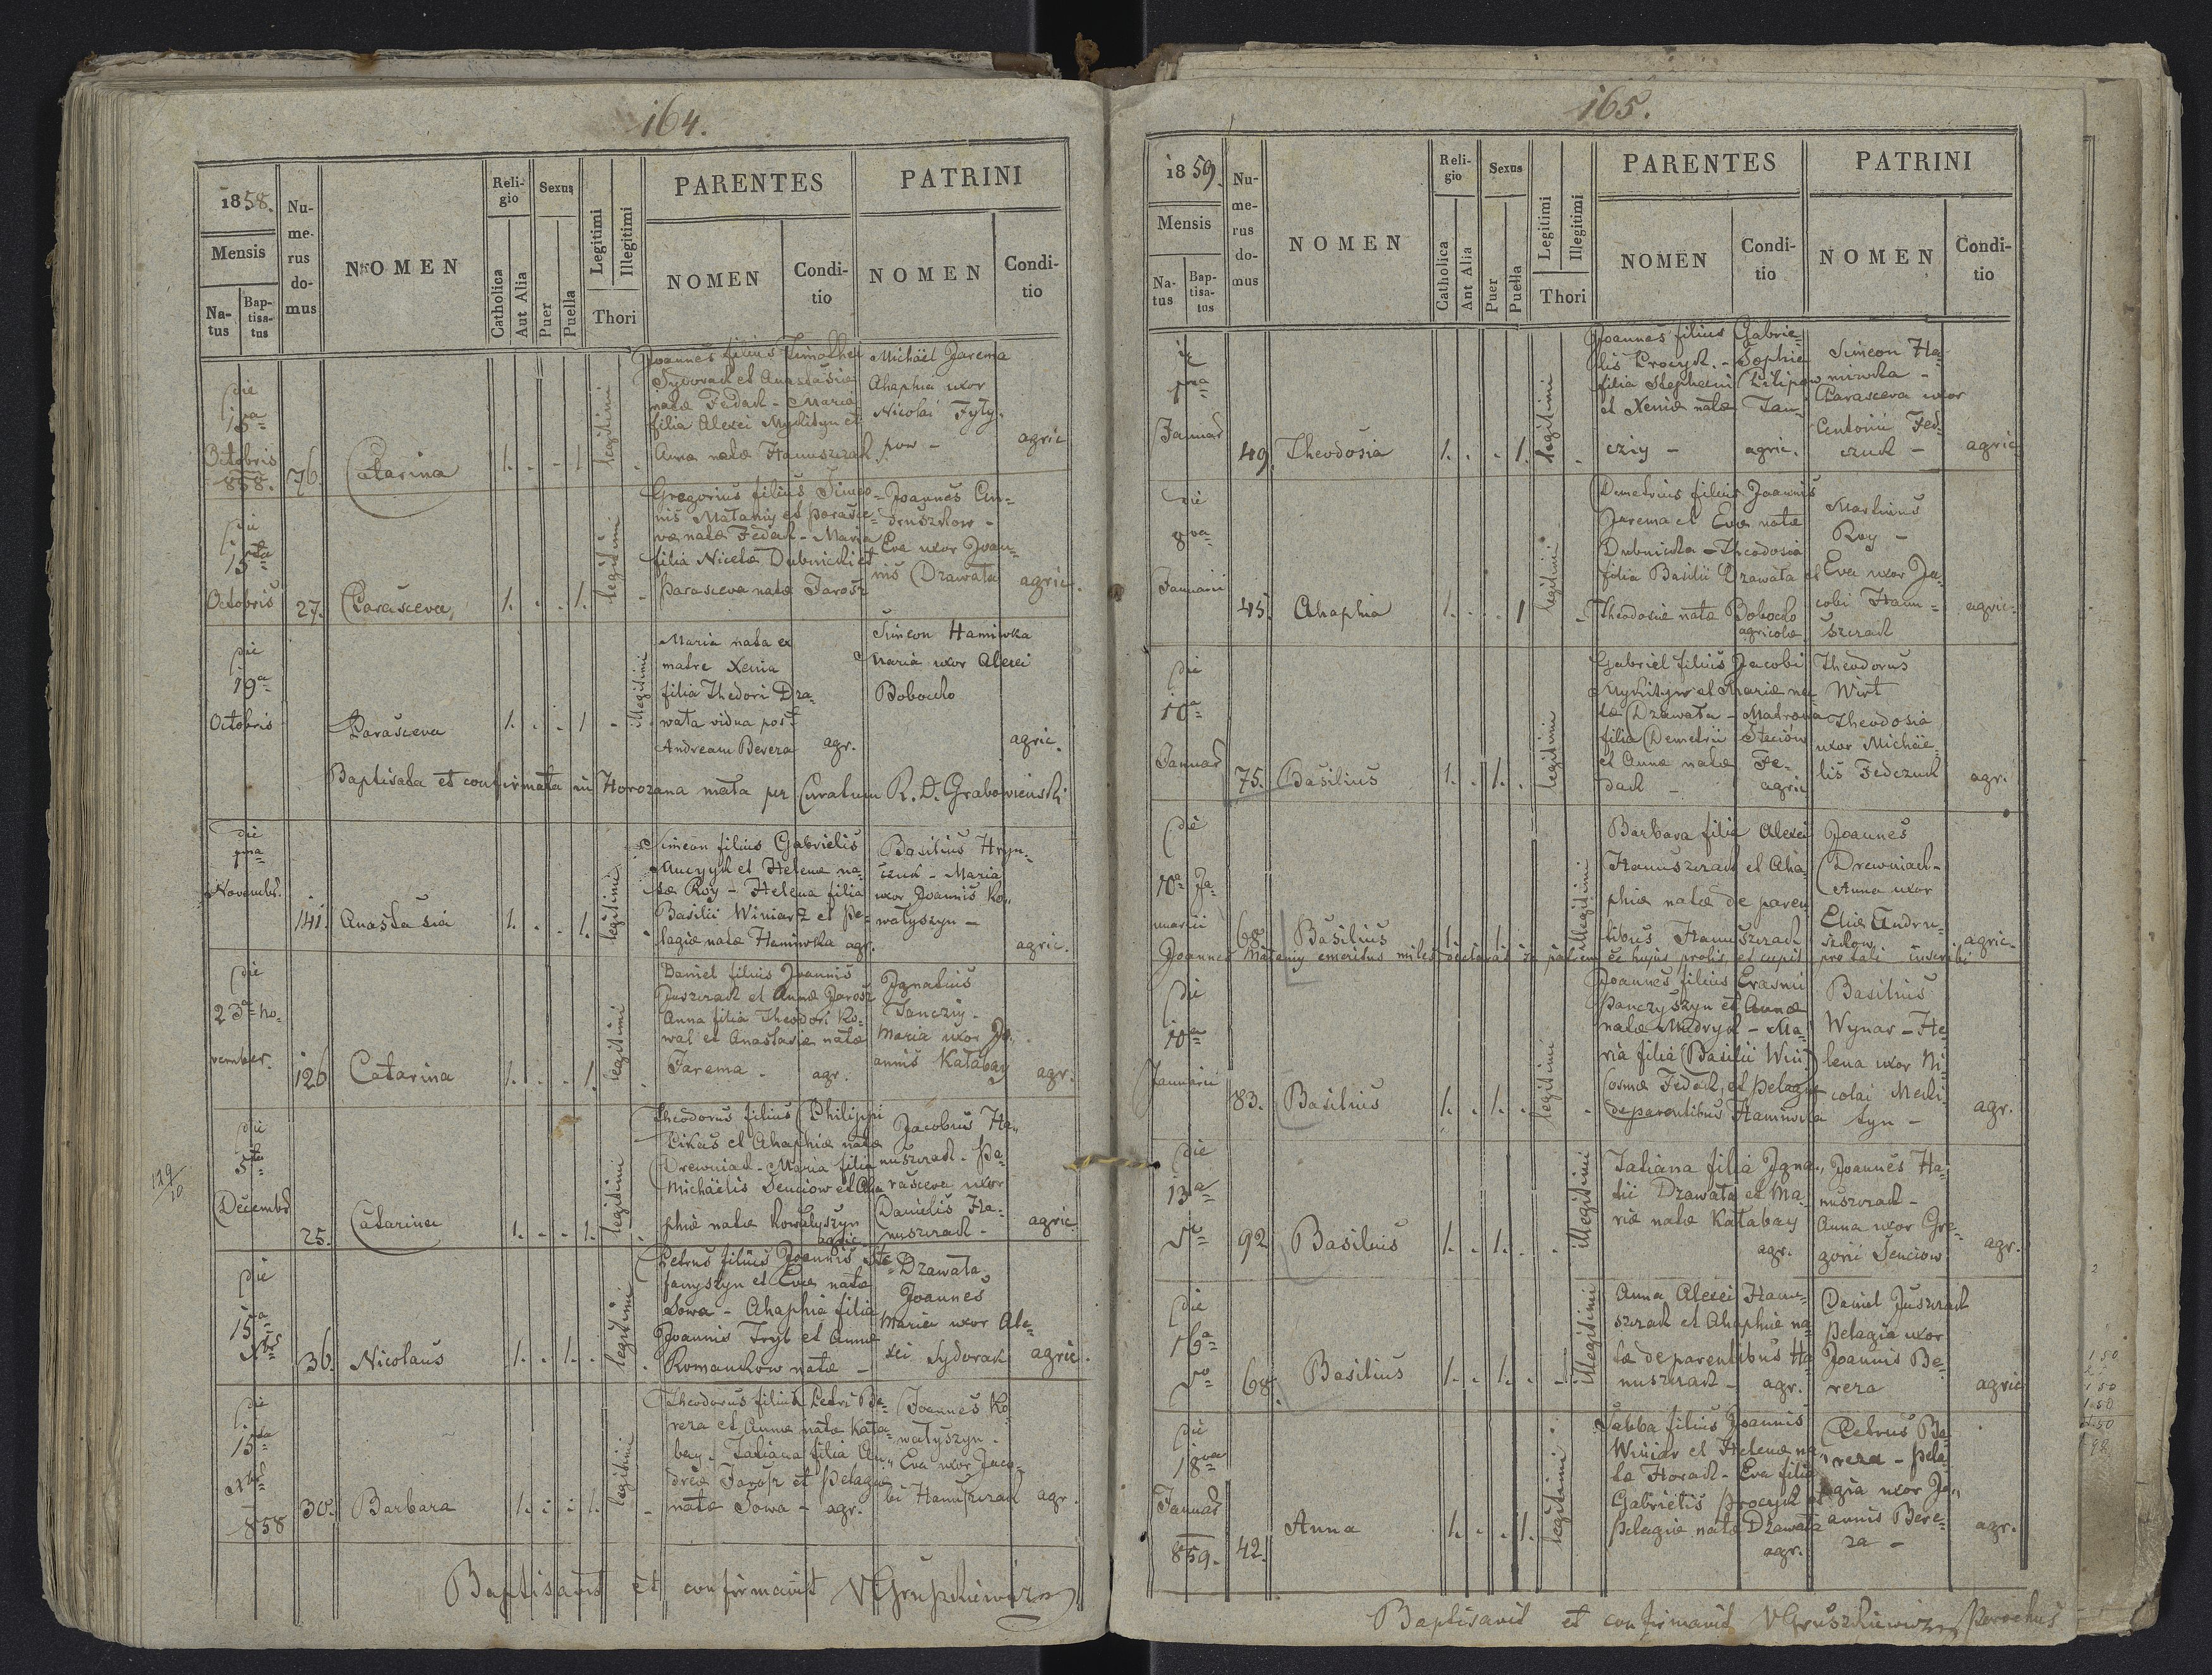 164.
1858.
Mensis
Na-
tus
Bap-
tisa-
tus
Nu-
me-
rus
do-
mus
NOMEN
Reli-
gio
Catholica
Aut Alia
Sexus
Puer
Puella
Legitimi
Illegitimi
Thori
PARENTES
NOMEN
Condi-
tio
PATRINI
NOMEN
Condi-
tio
die
13a
Octobris
858.
76.
Catarina
1. . . 1
legitimi
Joannes filius Timothei
Sydorak et Anastasiæ
natæ Fedak - Maria
filia Alexei Mykityn et
Annæ natæ Hanuszczak
Michäel Jarema
Ahaphia uxor
Nicolai Fyly-
pow -
agric
die
15ta
Octobris
27.
Parasceva
1. . . 1.
legitimi
Gregorius filius Simeo-
nis Mataniy et Parasce-
væ natæ Fedak - Maria
filia Nicetæ Dubnicki et
Parasceva natæ Jarosz
Joannes An-
druszkow -
Eva uxor Joan-
nis Drawata
agric.
die
19a
Octobris
Parasceva
1. . . 1 -
illegitimi
Maria nata ex
matre Xenia
filia Thedori Dra-
wata vidua post
Andream Bereza
agr.
Simeon Hamiwka
Maria uxor Alexei
Bobocko
agric.
Baptisata et confirmata in Horozana mała per Curatum R. D. Grabowienski
die
Novembr.
141.
Anastasia
1. . . 1.
legitimi
Simeon filius Gabrielis
Mucyyk et Helenæ na-
tæ Roy - Helena filia
Basilii Winiarz et Pe-
lagiæ natæ Hamiwka agr.
Basilius Hryn-
czuk - Maria
uxor Joannis Ko-
wałyszyn -
agric.
die
23a No-
vember.
126
Catarina
1. . . 1.
legitimi
Daniel filius Joannis
Juszczak et Annæ Jarosz
Anna filia Theodori Ko-
wal et Anastasiæ natæ
Jarema - agr.
Ignatius
Jancziy -
Maria uxor Jo-
annis Kałabay
agr.
129/10
die
5ta
Decembr
25.
Catarina
1. . . 1.
legitimi
Theodorus filius Philippi
Likas et Ahaphiæ natæ
Drewniak - Maria filia
Michäelis Senciow et Aha
phiæ natæ Kowałyszyn
agric
Jacobus Ha-
nuszczak - Pa-
rasceva uxor
Danielis Ha-
nuszczak -
agric
die
15a
Xbr
36.
Nicolaus
1. . 1. .
legitimi
Petrus filius Joannis Ste-
fanyszyn et Evæ natæ
Sowa - Ahaphia filia
Joannis Tryb et Annæ
Romankow natæ -
Drawata
Joannes
Maria uxor Ale-
xei Sydorak
agric.
die
15ta
Xbr
858
30.
Barbara
1. . . 1.
legitimi
Theodorus filius Petri Be-
reza et Annæ natæ Kała-
bay - Tatiana filia An-
dreæ Jarosz et Pelagiæ
natæ Sowa - agr.
Joannes Ko-
wałyszyn -
Eva uxor Jaco-
bi Hanuszczak
agr.
Baptisavit et confirmavit VGruszkiewicz
165.
1859.
Mensis
Na-
tus
Bap-
tisa-
tus
Nu-
me-
rus
do-
mus
NOMEN
Reli-
gio
Catholica
Aut Alia
Sexus
Puer
Puella
Legitimi
Illegitimi
Thori
PARENTES
NOMEN
Condi-
tio
PATRINI
NOMEN
Condi-
tio
1ma
Januar
49.
Theodosia
1. . . 1.
legitimi
Joannes filius Gabrie-
lis Procyk. - Sophie
filia Stephani Pilipow
et Xeniæ natæ Jan-
cziy - agric.
Simeon Ha-
miwka -
Parasceva uxor
Antonii Fed-
czuk -
agric
die
8va
Januarii
45.
Ahaphia
1. . . 1
legitimi
Demetrius filius Joannis
Jarema et Evæ natæ
Dubnicka - Theodosia
filia Basilii Drawata et
Theodosiæ natæ Bobocko
agricolæ
Martinus
Roy -
Eva uxor Ja-
cobi Hanu-
szczak
agric.
die
10a
Januar
75.
Basilius
1. . 1. .
legitimi
Gabriel filius Jacobi
Mykityn et Mariæ na-
tæ Drawata - Matrona
filia Demetrii Steciow
et Annæ natæ Fe-
dak - agric
Theodorus
Wirt
Theodosia
uxor Michäe-
lis Fedczuk
agr.
die
10a Ja-
nuarii
68.
Basilius
1. . 1.
illegitimi
Barbara filia Alexei
Hanuszczak et Aha-
phiæ natæ de paren
tibus Hanuszczak
Joannes
Drewniak -
Anna uxor
Eliæ Andru-
szkow
agric.
Joannes Mataniy emeritus miles declarat se patrem eê hujus prolis, et cupit pro tali inscribi
die
10a
Januarii
83.
Basilius
1. . 1. .
legitimi
Joannes filius Erasmi
Panczyszyn et Annæ
natæ Mudryk - Ma-
ria filia (Basilii Wini)
Cosmæ Fedak, et Pelagiæ
de parentibus Hamiwka
Basilius
Wynar - He
lena uxor Ni-
colai Meki-
tyn -
agr.
die
13a
92
Basilius
1. . 1. . .
illegitimi
Tatiana filia Igna-
tii Drawata et Ma-
riæ natæ Kałabay
agr.
Joannes Ha-
nuszczak -
Anna uxor Gre-
gorii Senciow
agr.
die
16a
68.
Basilius
1. . 1. . -
illegitimi
Anna Alexei Hanu-
szczak et Ahaphiæ na-
tæ de parentibus Ha
nuszczak - agr.
Daniel Juszczak
Pelagia uxor
Joannis Be-
reza
agric
die
18va
Januar
859.
42.
Anna
1. . . 1.
legitimi
Sabba filius Joannis
Winiar et Helenæ na
tæ Horak - Eva filia
Gabrielis Procyk et
Pelagiæ natæ Drawata
agr.
Petrus Be-
reza - Pela
gia uxor Jo-
annis Bere-
za -
agr.
Baptisavit et confirmavit VGruszkiewicz Parochus